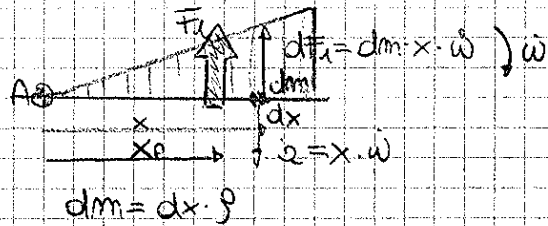 F₁
dF₁ = dm · x · ẇ
ẇ
A
dm
dx
x
xp
a = x · ẇ
dm = dx · ρ